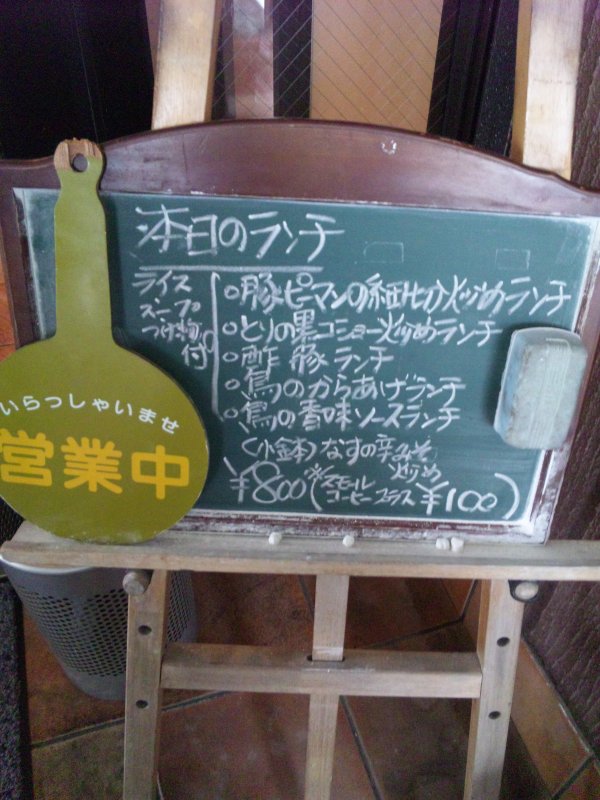 本日のランチ
ライス
スープ
つけ物
付
○豚ピーマンの細切り炒めランチ
○とりの黒コショー炒めランチ
○酢豚ランチ
○鳥のからあげランチ
○鳥の香味ソースランチ
(小鉢)なすの辛みそ
炒め
¥800(※スモール
コーヒープラス ¥100)
いらっしゃいませ
営業中